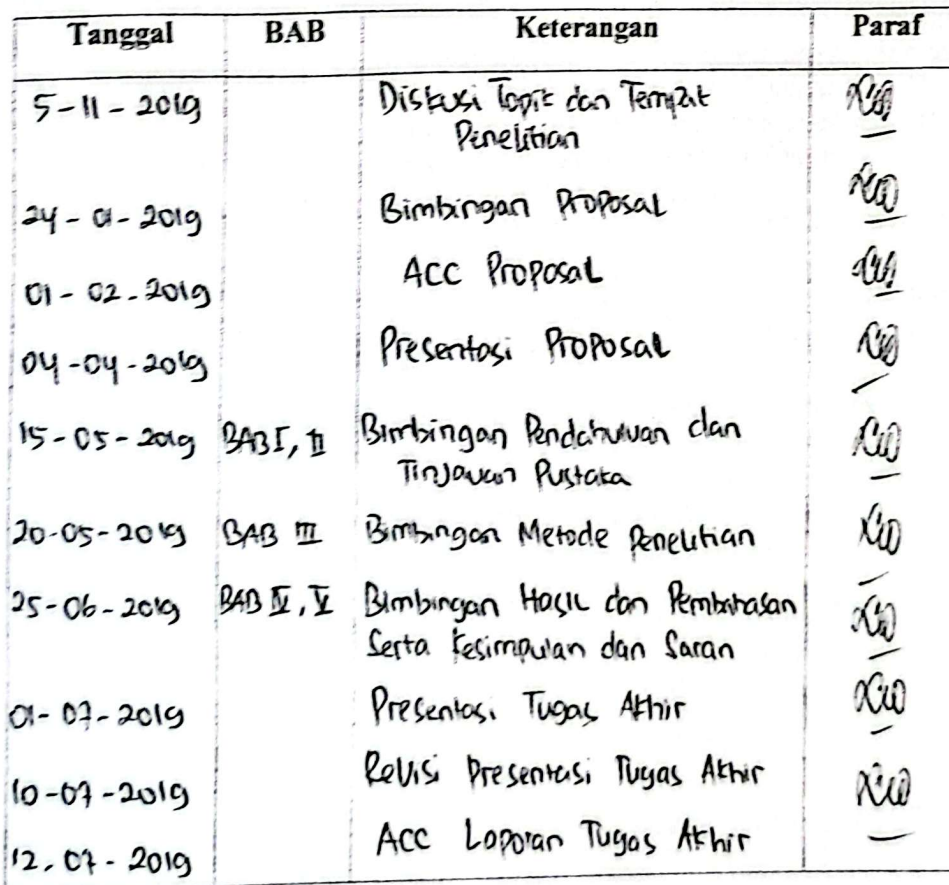 Tanggal BAB Keterangan Paraf
5-11-2019 Diskusi Topik dan Tempat
Penelitian
24-01-2019 Bimbingan Proposal
01-02-2019 ACC Proposal
04-04-2019 Presentasi Proposal
15-05-2019 BAB I, II Bimbingan Pendahuluan dan
Tinjauan Pustaka
20-05-2019 BAB III Bimbingan Metode Penelitian
25-06-2019 BAB IV, V Bimbingan Hasil dan Pembahasan
Serta Kesimpulan dan Saran
01-07-2019 Presentasi Tugas Akhir
10-07-2019 Revisi Presentasi Tugas Akhir
12-07-2019 ACC Laporan Tugas Akhir